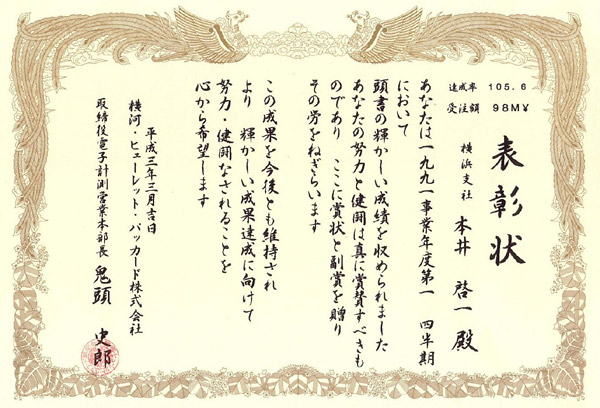 表彰状
達成率 105.6
受注額 98M¥
横浜支社 本井 啓一 殿
あなたは一九九一事業年度第一 四半期
において
頭書の輝かしい成績を収められました
あなたの努力と健闘は真に賞賛すべきも
のであり ここに賞状と副賞を贈り
その労をねぎらいます
この成果を今後とも維持され
より 輝かしい成果達成に向けて
努力・健闘なされることを
心から希望します
平成三年三月吉日
横河・ヒューレット・パッカード株式会社
取締役電子計測営業本部長 鬼頭 史郎